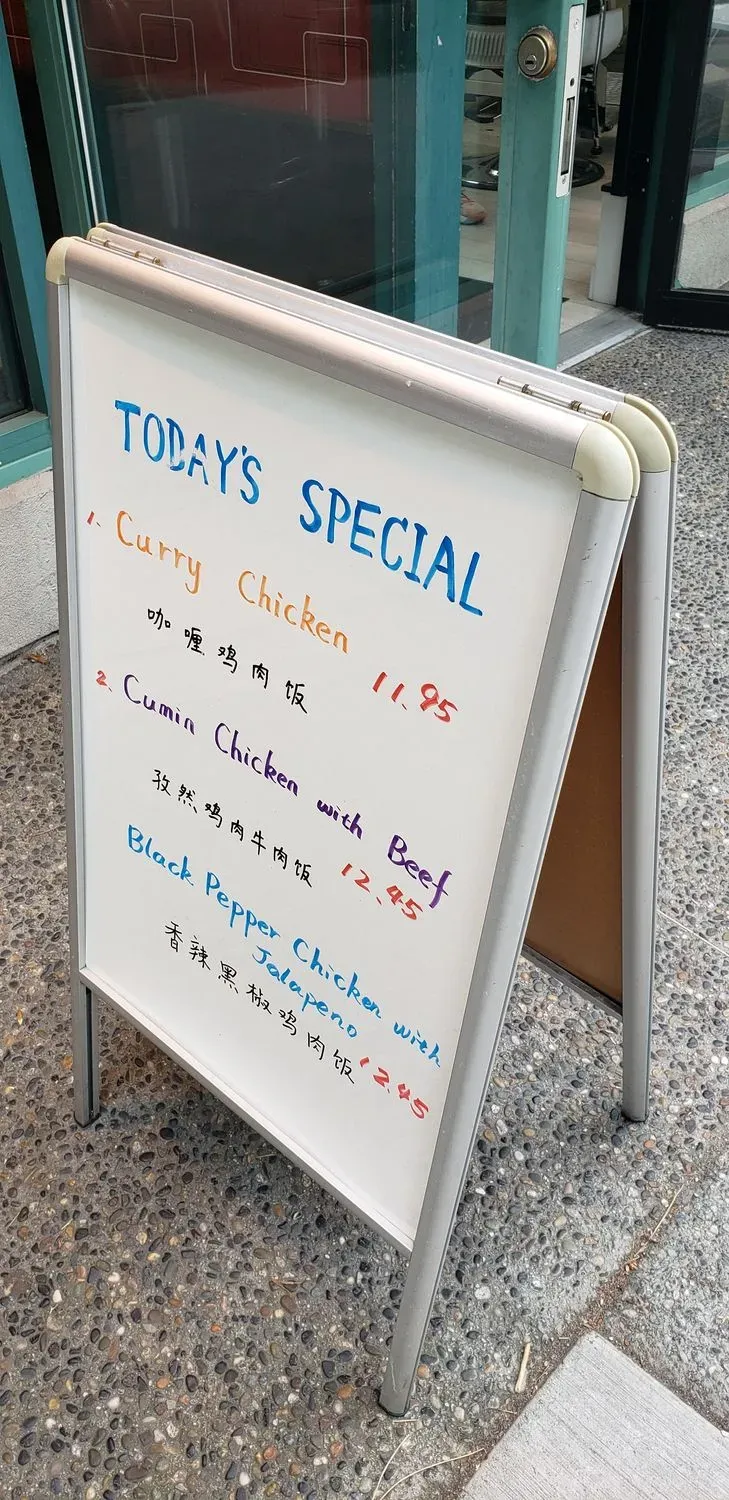 TODAY'S SPECIAL
1. Curry Chicken
咖喱鸡肉饭 11.95
2. Cumin Chicken with Beef
孜然鸡肉牛肉饭 12.45
Black Pepper Chicken with
Jalapeno
香辣黑椒鸡肉饭 12.45